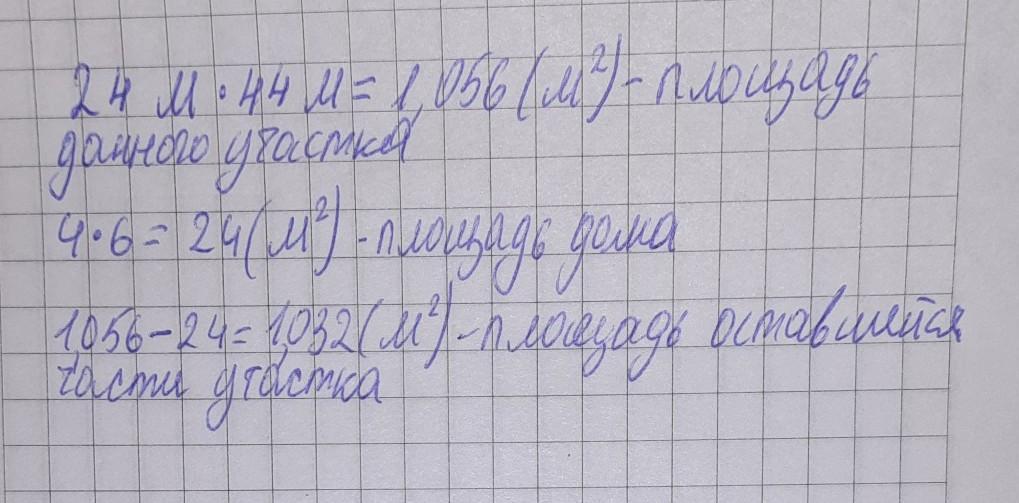 24 м · 44 м = 1,056 (м²) - площадь
данного участка
4 · 6 = 24 (м²) - площадь дома
1,056 - 24 = 1,032 (м²) - площадь оставшейся
части участка